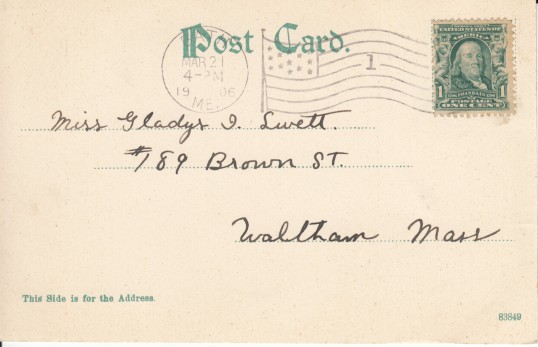 Post Card.
MAR 21
4-PM
1906
ME.
1
UNITED STATES OF AMERICA
1 FRANKLIN 1
POSTAGE
ONE CENT
Miss Gladys I. Swett.
#789 Brown St.
Waltham Mass
This Side is for the Address.
83849